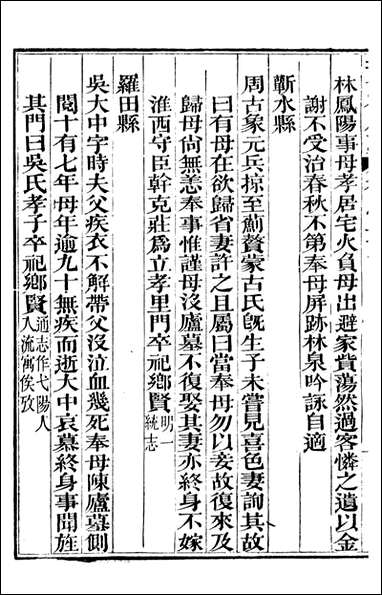 林鳳陽事母孝居宅火負母出避家貲蕩然過客憐之遺以金
謝不受治春秋不第奉母屏跡林泉吟詠自適
蘄水縣
周古象元兵掠至薊贅蒙古氏旣生子未嘗見喜色妻詢其故
曰有母在欲歸省妻許之且屬曰當奉母勿以妾故復來及
歸母尚無恙奉事惟謹母沒廬墓不復娶其妻亦終身不嫁
淮西守臣幹克莊爲立孝里門卒祀鄉賢明一統志
羅田縣
吳大中字時夫父疾衣不解帶父沒泣血幾死奉母陳廬墓側
閱十有七年母年逾九十無疾而逝大中哀慕終身事聞旌
其門曰吳氏孝子卒祀鄉賢通志作弋陽人入流寓俟攷